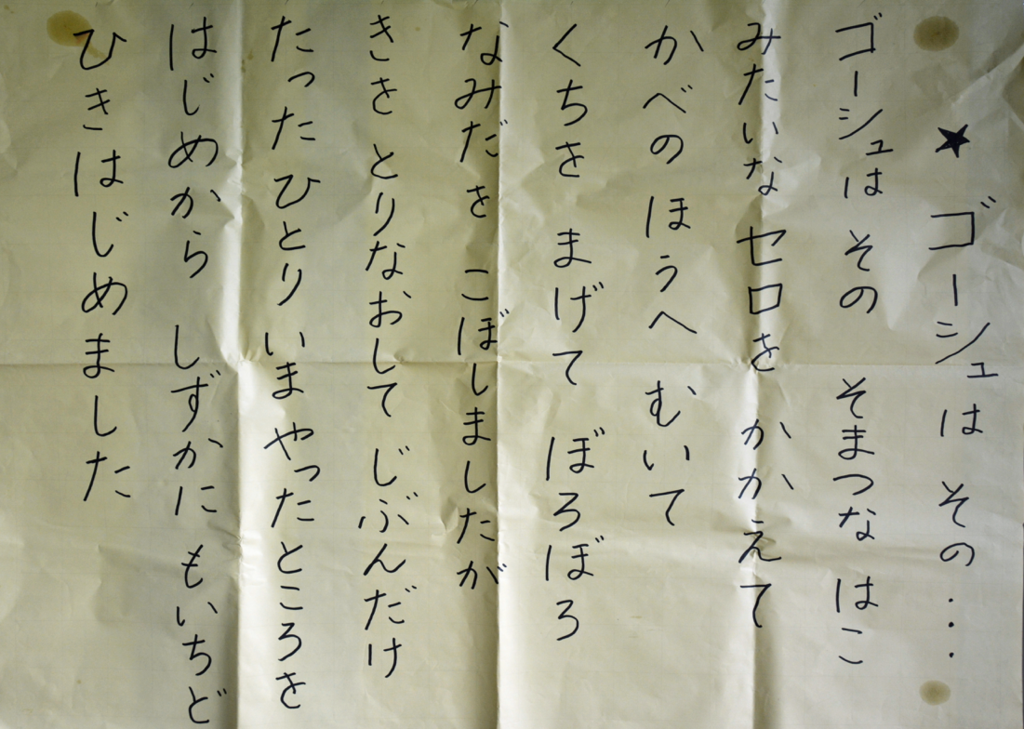 ★ ゴーシュは その...
ゴーシュは その そまつな はこ
みたいな セロを かかえて
かべの ほうへ むいて
くちを まげて ぼろぼろ
なみだを こぼしましたが
きを とりなおして じぶんだけ
たった ひとり いま やったところを
はじめから しずかに もいちど
ひきはじめました